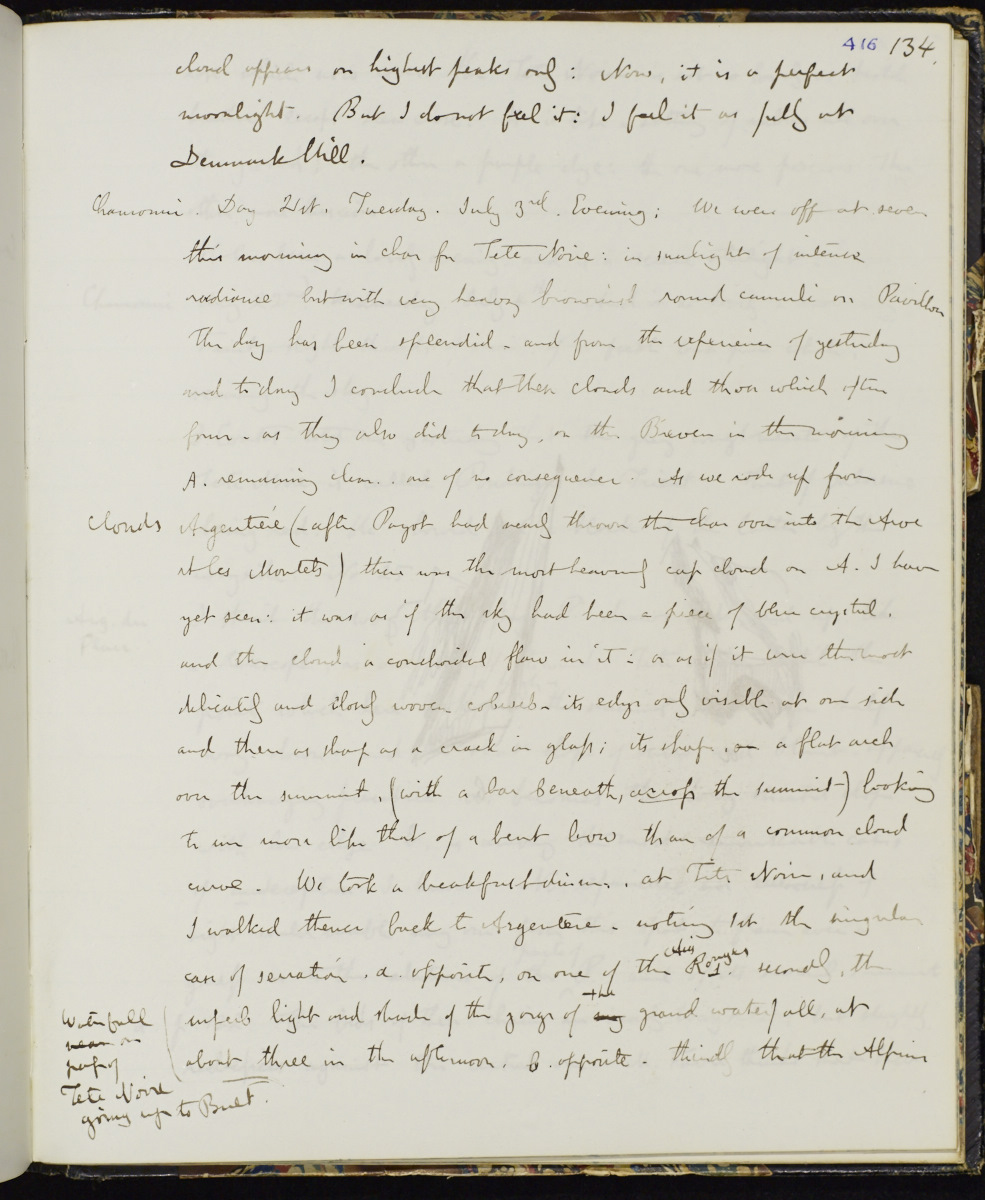 416 134.
cloud appears on highest peaks only: Now, it is a perfect
moonlight. But I do not feel it: I feel it as fully at
Denmark Hill.
Chamouni. Day 21st. Tuesday. July 3rd. Evening; We were off at seven
this morning in char for Tete Noire: in sunlight of intense
radiance but with very heavy brownish round cumuli on Pavillon
The day has been splendid - and from the experience of yesterday
and today I conclude that these clouds and those which often
form - as they also did today, on the Breven in the morning
A. remaining clear.. are of no consequence. As we rode up from
Clouds Argentiere (- after Payot had nearly thrown the char over into the Arve
at les Montets) there was the most heavenly cap cloud on A. I have
yet seen: it was as if the sky had been a piece of blue crystal.
and the cloud a conchoidal flaw in it: or as if it were the most
delicately and closely woven cobweb - its edge only visible at one side
and there as sharp as a crack in glass; its shape, on a flat arch
over the summit, (with a bar beneath, across the summit) looking
to me more like that of a bent bow than of a common cloud
curve. We took a breakfast dinner, at Tete Noire, and
I walked thence back to Argentere - noting 1st the singular
case of serration. a. opposite, on one of the Aig Rouges 1. secondly, the
Waterfall
near on
path of
Tete Noire
going up to Buet.
superb light and shade of the gorge of the grand waterfall, at
about three in the afternoon. b. opposite - thirdly that the Alpine